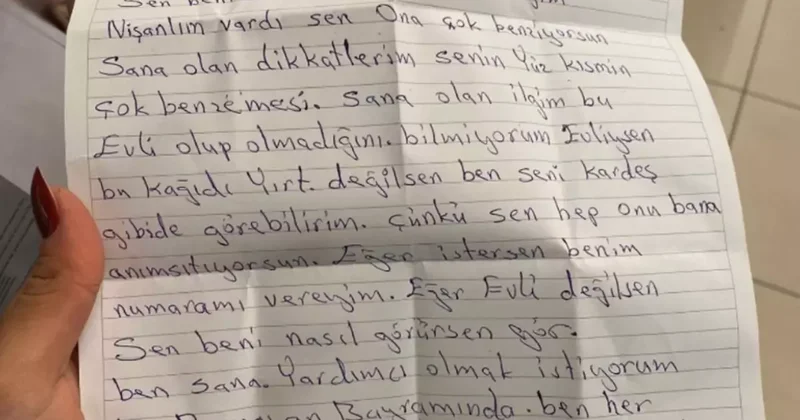 Sen ben
Nişanlım vardı sen Ona çok benziyorsun
Sana olan dikkatlerim senin Yüz kısmin
çok benzemesi. Sana olan ilgim bu
Evli olup olmadığını. bilmiyorum Evliysen
bu kağıdı Yırt. değilsen ben seni kardeş
gibide görebilirim. Çünkü sen hep onu bana
anımsıtıyorsun. Eğer istersen benim
numaramı vereyim. Eğer Evli değilsen
Sen beni nasıl görürsen gör.
ben sana. Yardımcı olmak istiyorum
Bayramında. ben her